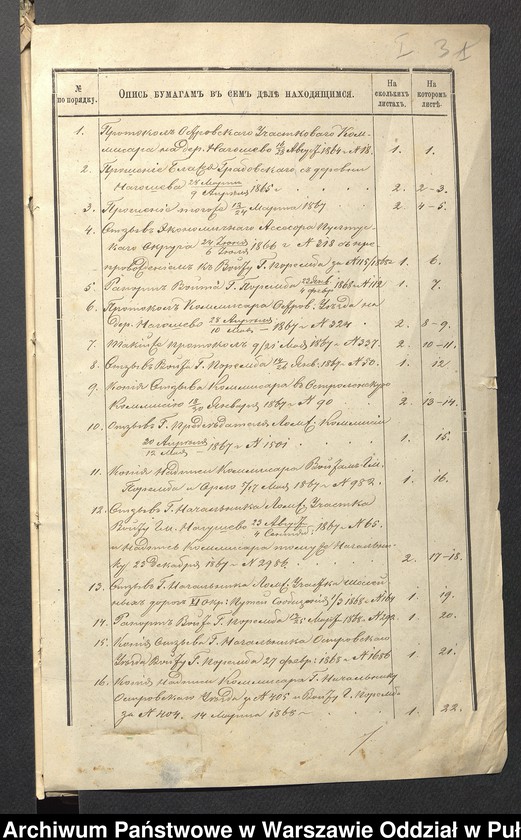 I 31
№ по порядку.
Опись бумагамъ въ семъ дѣлѣ находящимся.
На сколькихъ листахъ.
На которомъ листѣ.
1. Протоколъ Островскаго Участковаго Ком-
миссара на дер. Нагошево Авгу 1864 г. № 18. 1. 1.
2. Прошеніе Градовскаго, съ деревни
Нагошева 28 Марта / 9 Апреля 1865 г. 2. 2-3.
3. Прошеніе того же 12/24 Марта 1867 2. 4-5.
4. Отзывъ Экономичнаго Асессора Пултус-
каго Округа 1866 г. № 218 съ пре-
провожденіемъ къ Войту Г. Поремба за № 1. 6.
5. Рапортъ Войта Г. Поремба 1868 г. № 112 1. 7.
6. Протоколъ Коммисара Остров. Уѣзда на
Дер. Нагошево 28 Апреля / 10 Мая 1867 г. № 324 2. 8-9.
7. Такийже протоколъ 9/21 Мая 1867 г. № 337. 2. 10-11.
8. Отзывъ Войта Г. Поремба Янв. 1867 г. № 50. 1. 12
9. Копія Отзыва Коммисара въ Остроленскую
Коммисію Января 1867 г. № 90 2. 13-14.
10. Отзывъ Г. Предсѣдателя Лом. Коммисіи
20 Апреля / 12 Мая 1867 г. № 1501 1. 15.
11. Копія Надписи Коммисара Войтамъ Гм.
Поремба и Орло 5/17 Мая 1867 г. № 982. 1. 16.
12. Отзывъ Г. Начальника Лом. Участка
Войту Гм. Нагошево 23 Августа / 4 Сентяб. 1867 г. № 65.
и Надпись Коммисара тому же Начальни-
ку 23 Декабря 1867 г. № 2986. 2. 17-18.
13. Отзывъ Г. Начальника Лом. Участка шоссей-
ныхъ дорогъ XI Окр. Путей Сообщенія 1868 г. № 164 1. 19.
14. Рапортъ Войта Г. Поремба Март. 1868 г. № 292 1. 20.
15. Копія Отзыва Г. Начальника Островскаго
Уѣзда Войту Г. Поремба 27 февр. 1868 г. № 1686 1. 21.
16. Копія Надписи Коммисара Г. Начальнику
Островскаго Уѣзда за № 405 и Войту Г. Поремба
за № 404. 14 Марта 1868 г. 1. 22.
Archiwum Państwowe w Warszawie Oddział w Puł